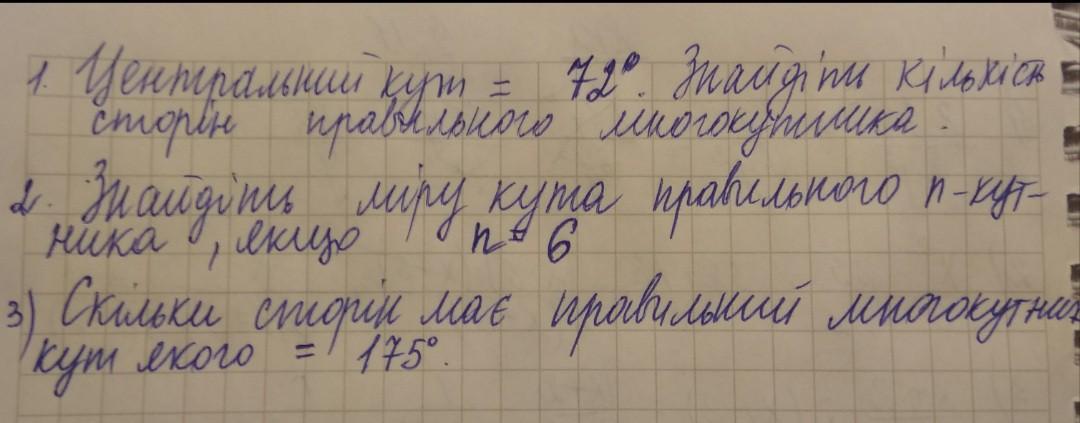 1. Центральний кут = 72°. Знайдіть кількість
сторін правильного многокутника.
2. Знайдіть міру кута правильного n-кут-
ника, якщо n = 6
3) Скільки сторін має правильний многокутник
кут якого = 175°.